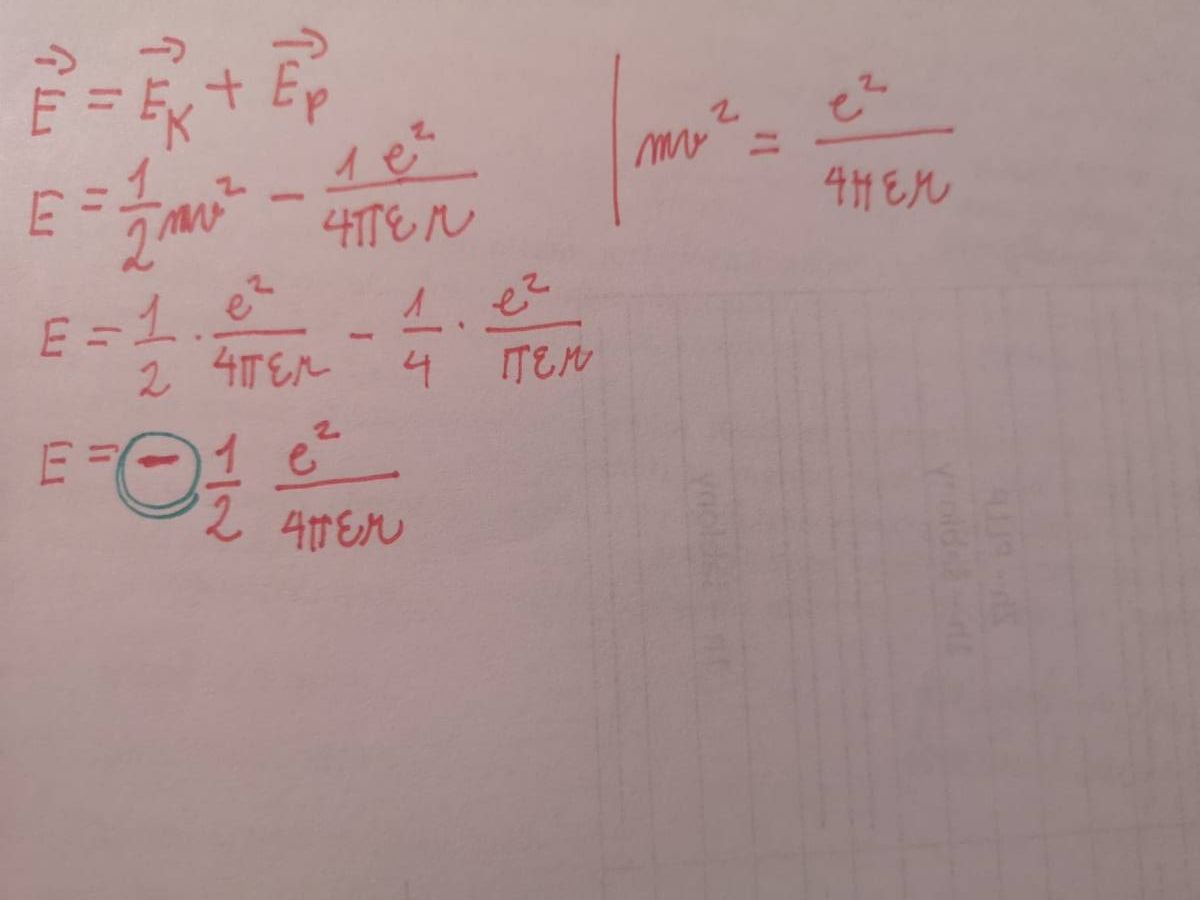 E⃗ = E⃗_K + E⃗_P
E = 1/2 mv² − 1 e²/4πεr
E = 1/2 · e²/4πεr − 1/4 · e²/πεr
E = − 1/2 e²/4πεr
| mv² = e²/4πεr